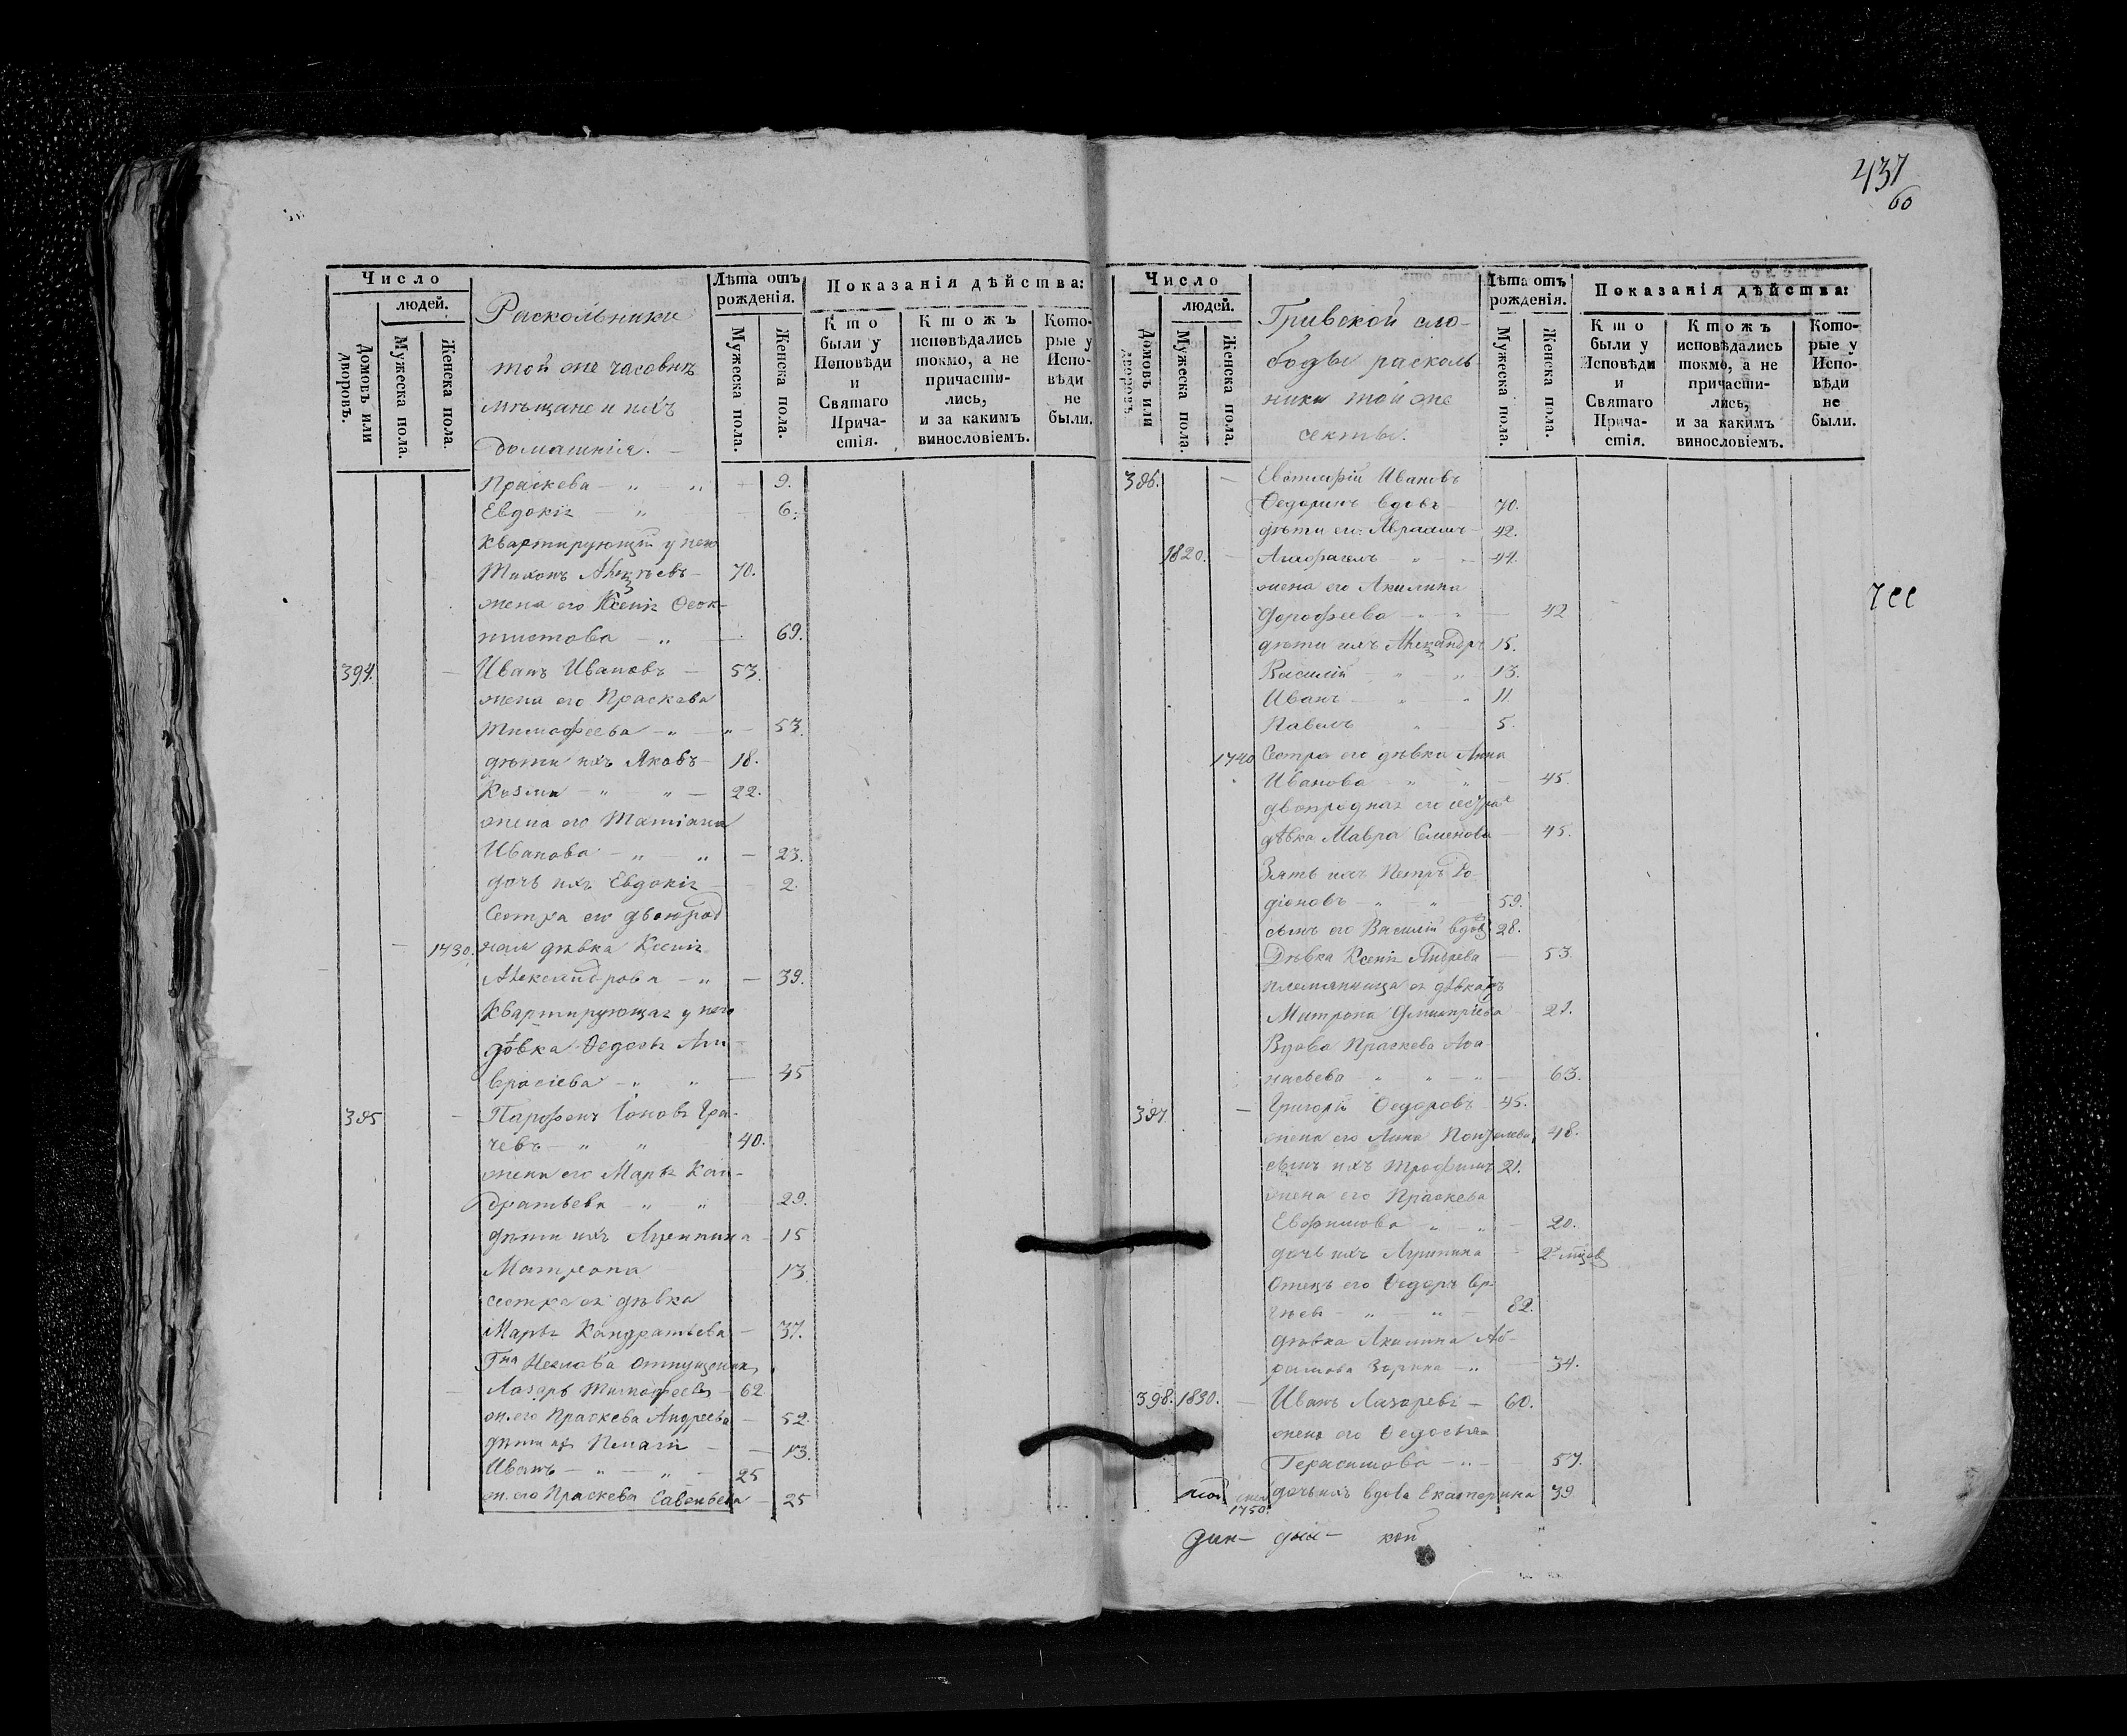 437
60
Число
людей.
Домовъ или дворовъ.
Мужеска пола.
Женска пола.
Раскольники
той же часовнѣ
мѣщане и ихъ
домашнія.
Лѣта отъ рожденія.
Мужеска пола.
Женска пола.
Показанія дѣйства:
Кто были у Исповѣди и Святаго Прича-стія.
Ктожъ исповѣдались токмо, а не причасти-лись, и за какимъ винословіемъ.
Кото-рые у Испо-вѣди не были.
Праскева - " - " - 9.
Евдокія - " - 6.
Квартирующій у него
Тихонъ Алексѣевъ - 70.
жена его Ксенія Феок-
тистова - " - 69.
394. - Иванъ Ивановъ - 53.
жена его Праскева
Тимофеева - " - " - 53.
дѣти ихъ Яковъ - 18.
Козма - " - " - 22.
жена его Татіана
Иванова - " - " - 23.
дочь ихъ Евдокія - 2.
Сестра его двоюрод
- 1730. ная дѣвка Ксенія
Александрова - " - 39.
Квартирующая у него
дѣвка Федосья Ам-
вросіева - " " - 45
395 - Парфенъ Іоновъ Гра-
чевъ - " " 40.
жена его Марья Кон-
дратьева - " - " 29.
дѣти ихъ Агрипина - 15
Матрона 13.
сестра ея дѣвка
Марья Кандратьева - 37.
Гна отпущенник
- Лазарь Тимофеевъ - 62
ж. его Праскева Андреева - 52.
дѣти их Пелагія - - 13.
Иванъ - " - " - 25
ж. его Праскева Савельева - 25
Число
людей.
Домовъ или дворовъ.
Мужеска пола.
Женска пола.
Гривской сло-
боды расколь-
ники той же
секты.
Лѣта отъ рожденія.
Мужеска пола.
Женска пола.
Показанія дѣйства:
Кто были у Исповѣди и Святаго Прича-стія.
Ктожъ исповѣдались токмо, а не причасти-лись, и за какимъ винословіемъ.
Кото-рые у Испо-вѣди не были.
396. - Ивановъ
Федоринъ вдовъ 70.
дѣти его: Авраамъ - 42.
1820. - " - 44.
жена его Акилина
Дорофеева - " - 42
дѣти ихъ Александръ 15.
Василій - " - " - 13.
Иванъ - " - " 11.
Павелъ " - 5.
1740 Сестра его дѣвка Анна
Иванова " " - 45.
двоюродная его сестра
дѣвка Мавра Семенова - 45.
Зять ихъ Петръ Ро-
діоновъ - " - " - 59.
сынъ его Василій вдов 28.
Дѣвка Ксенія Андреева - 53.
племянница ея дѣвка
Матрона Дмитріева 21.
Вдова Праскева Афа-
насьева - " - " - 63.
397 - Григорій Федоровъ 45.
жена его Анна 48.
сынъ ихъ Трофимъ 21.
жена его Праскева
Евфимова - " - " - 20.
дочь ихъ Агрипина - 2
Отецъ его Федоръ Ер-
- " - " - 82.
дѣвка Акилина Аб-
рамова Зорина - " - 34.
398. 1830. - Иванъ Лазаревъ - 60.
жена его Федосья
Герасимова - " - 57.
1750. дочь ихъ вдова Екатерина 39.